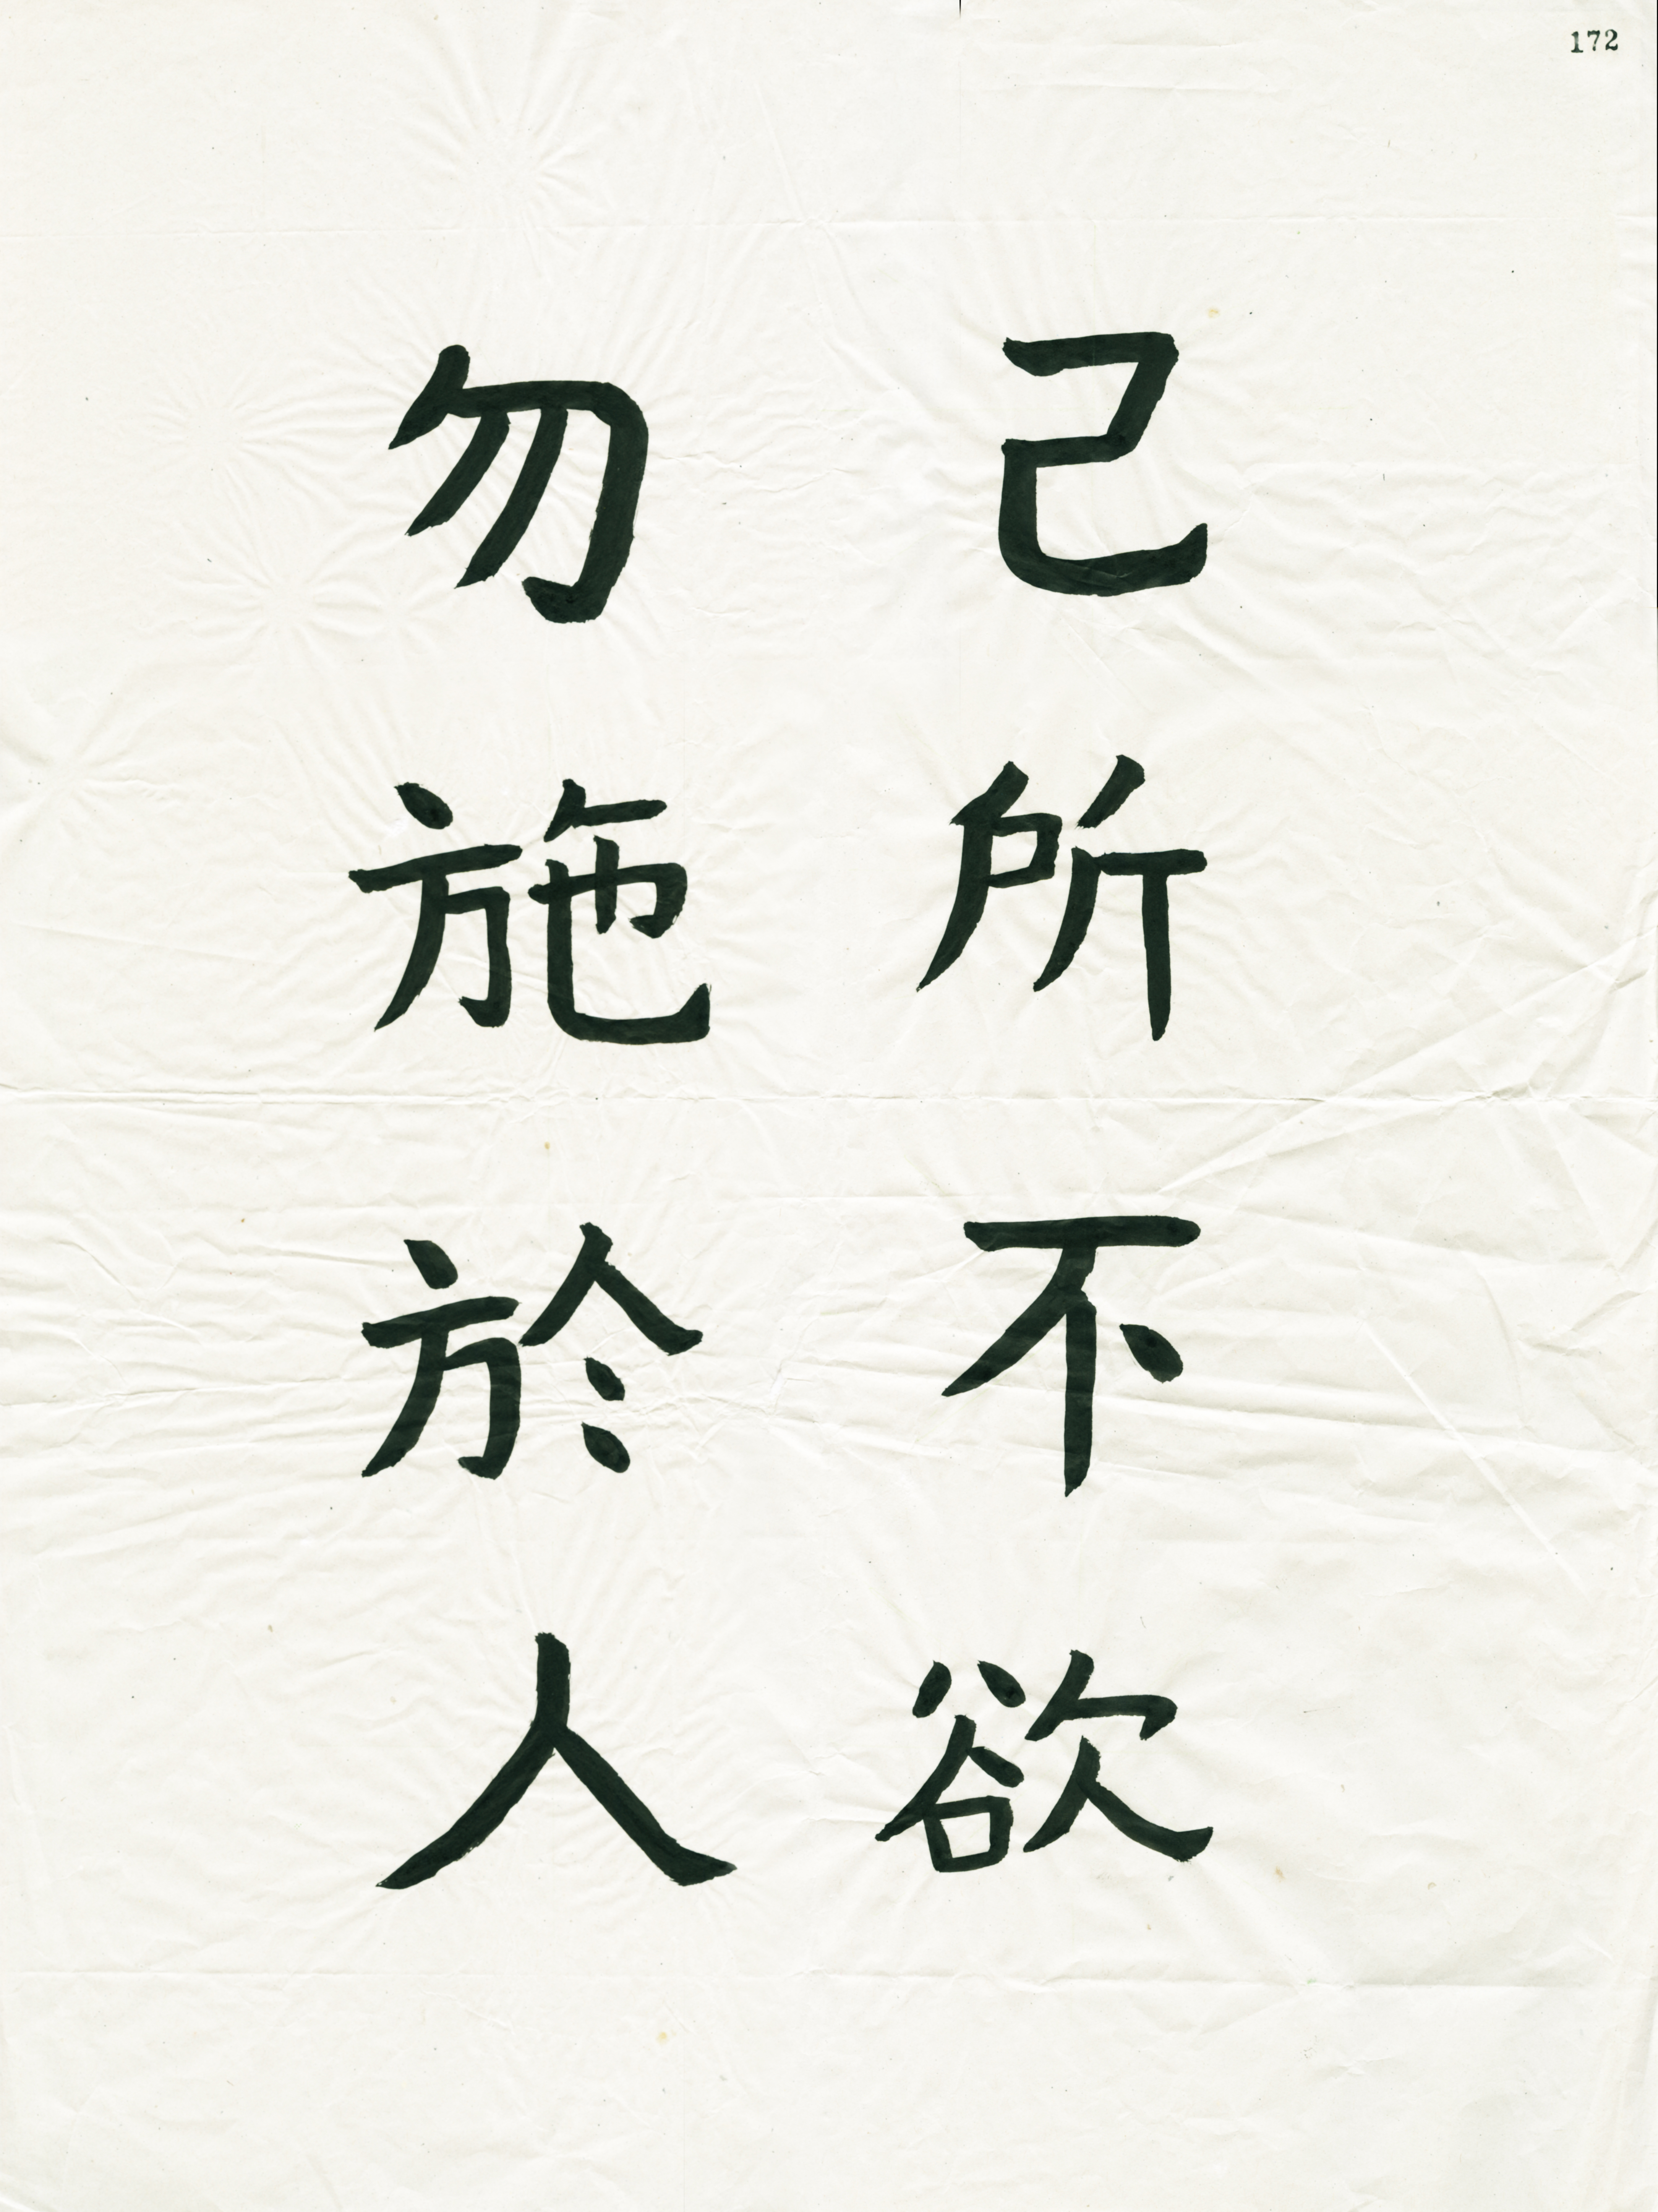 172
己所不欲
勿施於人